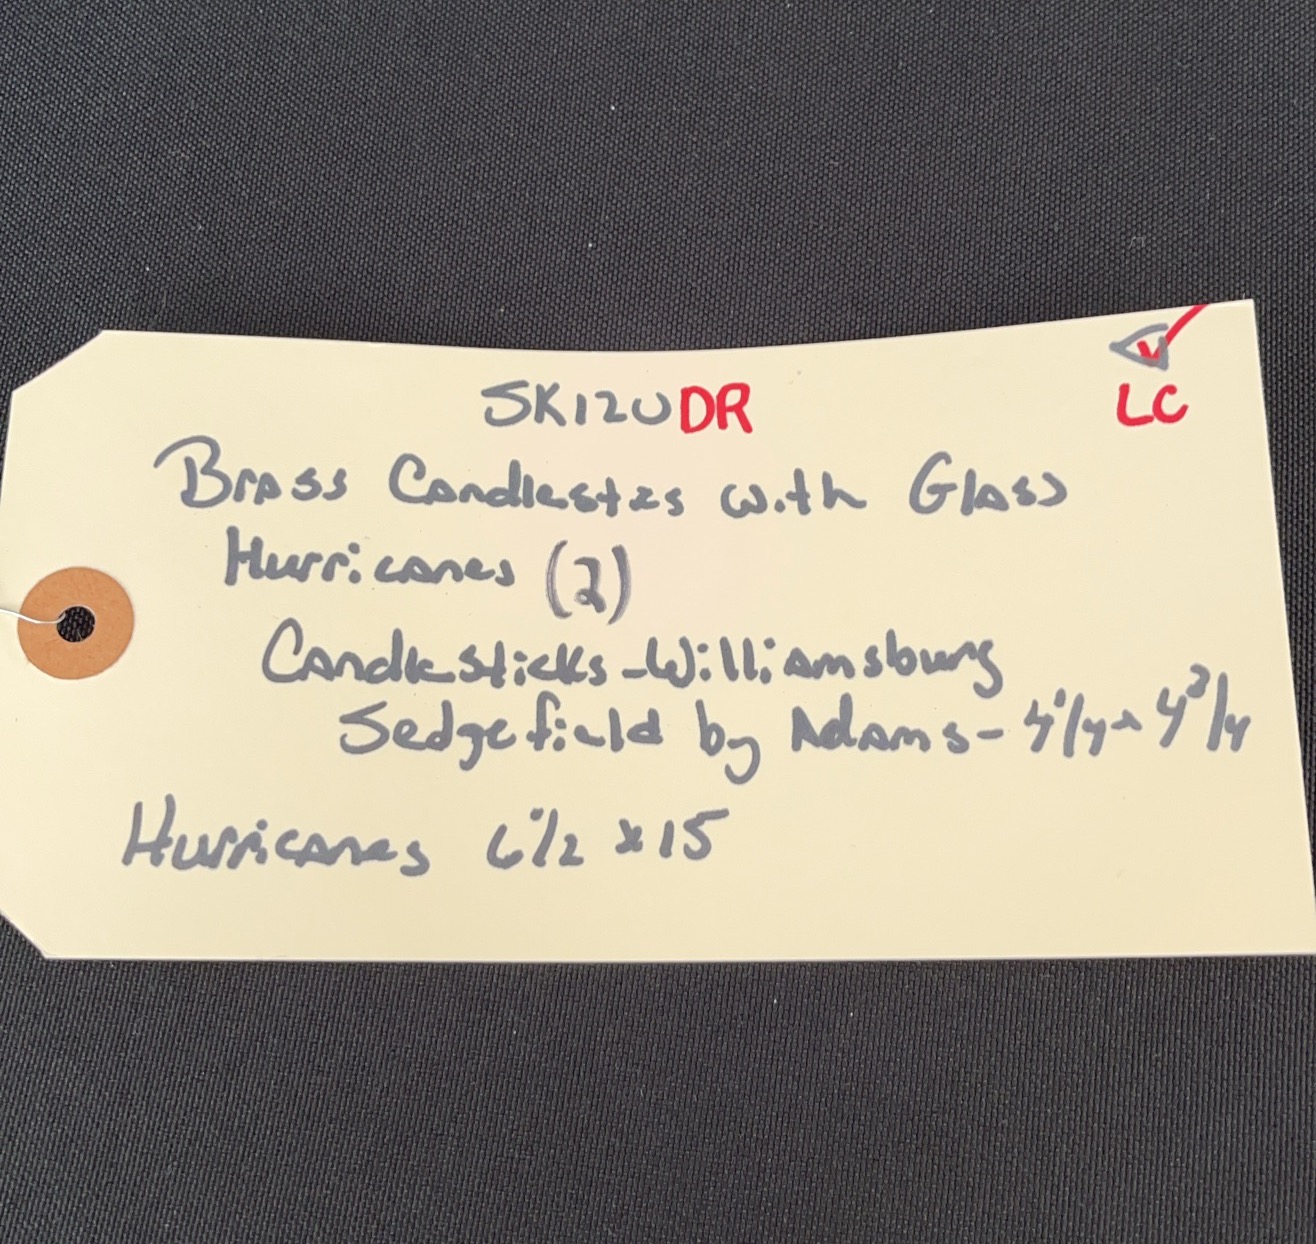 SK12UDR
LC
Brass Candlestxs with Glass
Hurricanes (2)
Candlesticks - Williamsburg
Sedgefield by Adams - 4 1/4 x 4 3/4
Hurricanes 6 1/2 x 15